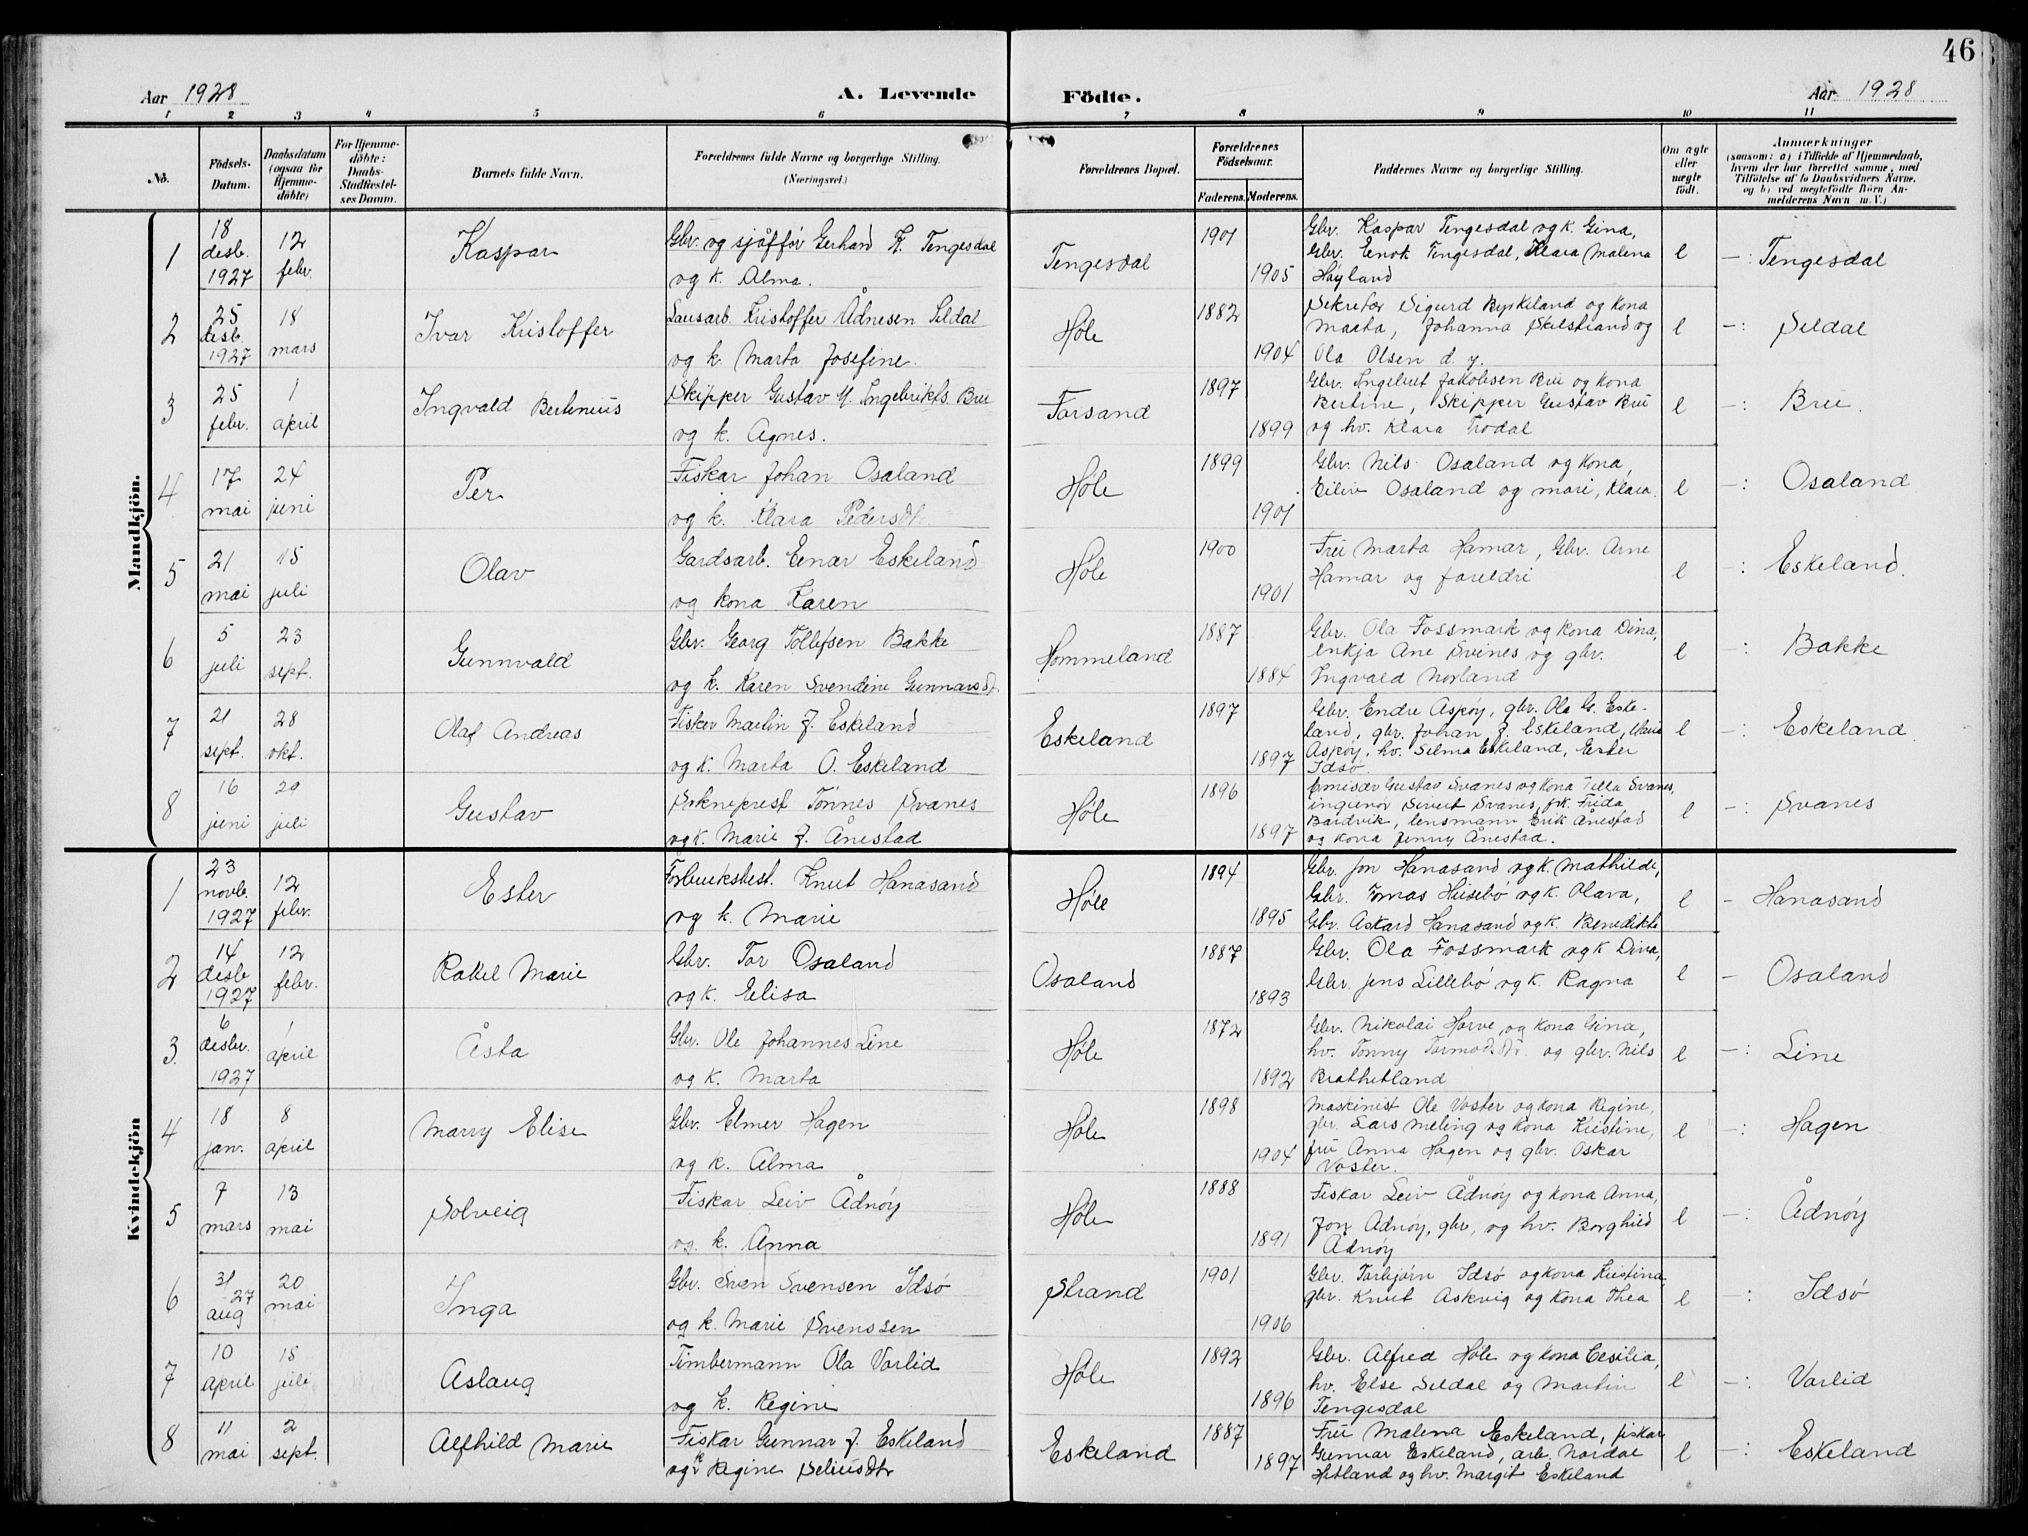 46
Aar 1928
A. Levende Födte.
Aar 1928
1 2 3 4 5 6 7 8 9 10 11
No.
Födsels-
Datum.
Daabsdatum
(ogsaa for
Hjemme-
döbte)
For Hjemme-
döbte:
Daabs-
Stadfæstel-
ses Datum.
Barnets fulde Navn.
Forældrenes fulde Navne og borgerlige Stilling.
(Næringsvei.)
Forældrenes Bopæl.
Forældrenes
Födselsaar.
Faderens. Moderens.
Faddernes Navne og borgerlige Stilling.
Om ægte
eller
uægte
födt.
Anmærkninger
(saasom: a) i Tilfælde af Hjemmedaab,
hvem der har forrettet samme, med
Tilföielse af to Daabsvidners Navne,
og b) ved uægtefödte Börn An-
melderens Navn m. V.)
Mandkjön.
1
18
desb.
1927
12
febr.
Kaspar
Gbr. og sjåffør Gerhard K. Tengesdal
og k. Alma.
Tengesdal
1901
1905
Gbr. Kaspar Tengesdal og k. Gina,
Gbr. Enok Tengesdal, Klara Malena
Høyland
l
-: Tengesdal
2
25
desb.
1927
18
mars
Ivar Kristoffer
Lausarb. Kristoffer Ådnesen Seldal
og k. Marta Josefine.
Høle
1882
1904
Sekretær Sigurd Byrkeland og kona
Marta, Johanna Skilstrand og
Ola Olsen d. y.
l
-: Seldal
3
25
febr.
1
april
Ingvald Bertinius
Skipper Gustav M. Ingebrikts. Bru
og k. Agnes.
Forsand
1897
1899
Gbr. Ingebret Jakobsen Bru og kona
Bertine, Skipper Gustav Bru
og hv. Klara Frodal
l
-: Bru.
4
17
mai
24
juni
Per
Fiskar Johan Osaland
og k. Klara Pedersdt.
Høle
1899
1901
Gbr. Nils Osaland og kona,
Eiliv Osaland og mari, Klara.
l
-: Osaland
5
21
mai
15
juli
Olav
Gardsarb. Einar Eskeland
og kona Karen
Høle
1900
1901
Frú Marta Hamar, Gbr. Arne
Hamar og foreldri
l
-: Eskeland.
6
5
juli
23
sept.
Gunnvald
Gbr. Georg Tollefsen Bakke
og k. Karen Svendine Gunnarsdt.
Hommeland
1887
1884
Gbr. Ola Fossmark og kona Dina,
enkja Ane Svines og gbr.
Ingvald Norland
l
-: Bakke
7
21
sept.
28
okt.
Olaf Andreas
Fisker Martin J. Eskeland
og k. Marta O. Eskeland
Eskeland
1897
1897
Gbr. Endre Aspøy, gbr. Ola G. Eske-
land, gbr. Johan J. Eskeland, Marie
Aspøy, hv. Selma Eskeland, Ester
Idsø
l
-: Eskeland.
8
16
juni
29
juli
Gustav
Sokneprest Tønnes Svanes
og k. Marie J. Ånestad
Høle
1896
1897
Emisær Gustav Svanes og kona Tilla Svanes,
ingeniør Sivert Svanes, frk. Frida
Bardvik, lensmann Erik Ånestad
og kona Jenny Ånestad.
l
-: Svanes
Kvindekjön
1
23
novb.
1927
12
febr.
Ester
Forbruksbest. Knut Hanasand
og k. Marie
Høle
1894
1895
Gbr. Jon Hanasand og k. Mathilde,
Gbr. Tomas Husebø og k. Olava,
Gbr. Askard Hanasand og k. Benedikte
l
- Hanasand
2
14
desb.
1927
12
febr.
Rakel Marie
Gbr. Tor Osaland
og k. Elisa
Osaland
1887
1893
Gbr. Ola Fossmark og k. Dina,
Gbr. Jens Lillebø og k. Ragna
l
- Osaland
3.
6
desbr.
1927
1
april
Åsta
Gbr. Ole Johannes Line
og k. Marta
Høle
1872
1892
Gbr. Nikolai Harve, og kona Gina,
hv. Tonny Tormodsdtr. og gbr. Nils
Bratthetland
l
-: Line
4
18
jan.
8
april
Marry Elise
Gbr. Elmer Hagen
og k. Alma
Høle
1898
1904
Maskinist Ole Voster og kona Regine,
gbr. Lars Meling og kona Kristine,
frú Anna Hagen og gbr. Oskar
Voster.
l
-: Hagen
5
7
mars
13
mai
Solveig
Fiskar Leiv Ådnøy
og k. Anna
Høle
1888
1891
Fiskar Leiv Ådnøy og kona Anna,
Jon Adnøy, gbr, og hv. Borghild
Ådnøy
l
-: Ådnøy
6
31
27
aug
20
mai
Inga
Gbr. Sven Svensen Idsø
og k. Marie Svenssen
Strand
1901
1906
Gbr. Torbjørn Idsø og kona Kristina,
gbr. Knut Askvig og kona Thea
l
-: Idsø
7
10
april
15
juli
Aslaug
Timbermann Ola Varlid
og k. Regine
Høle
1892
1896
Gbr. Alfred Høle og kona Cesilia,
hv. Else Seldal og Martin
Tengesdal
l
-: Varlid
8
11
mai
2
sept.
Alfhild Marie
Fiskar Gunnar J. Eskeland
og k Regine Seliusdtr
Eskeland
1887
1897
Frú Malena Eskeland, fiskar
Gunnar Eskeland, arb. Nordal
Hetland og hv. Margit Eskeland
l
-: Eskeland